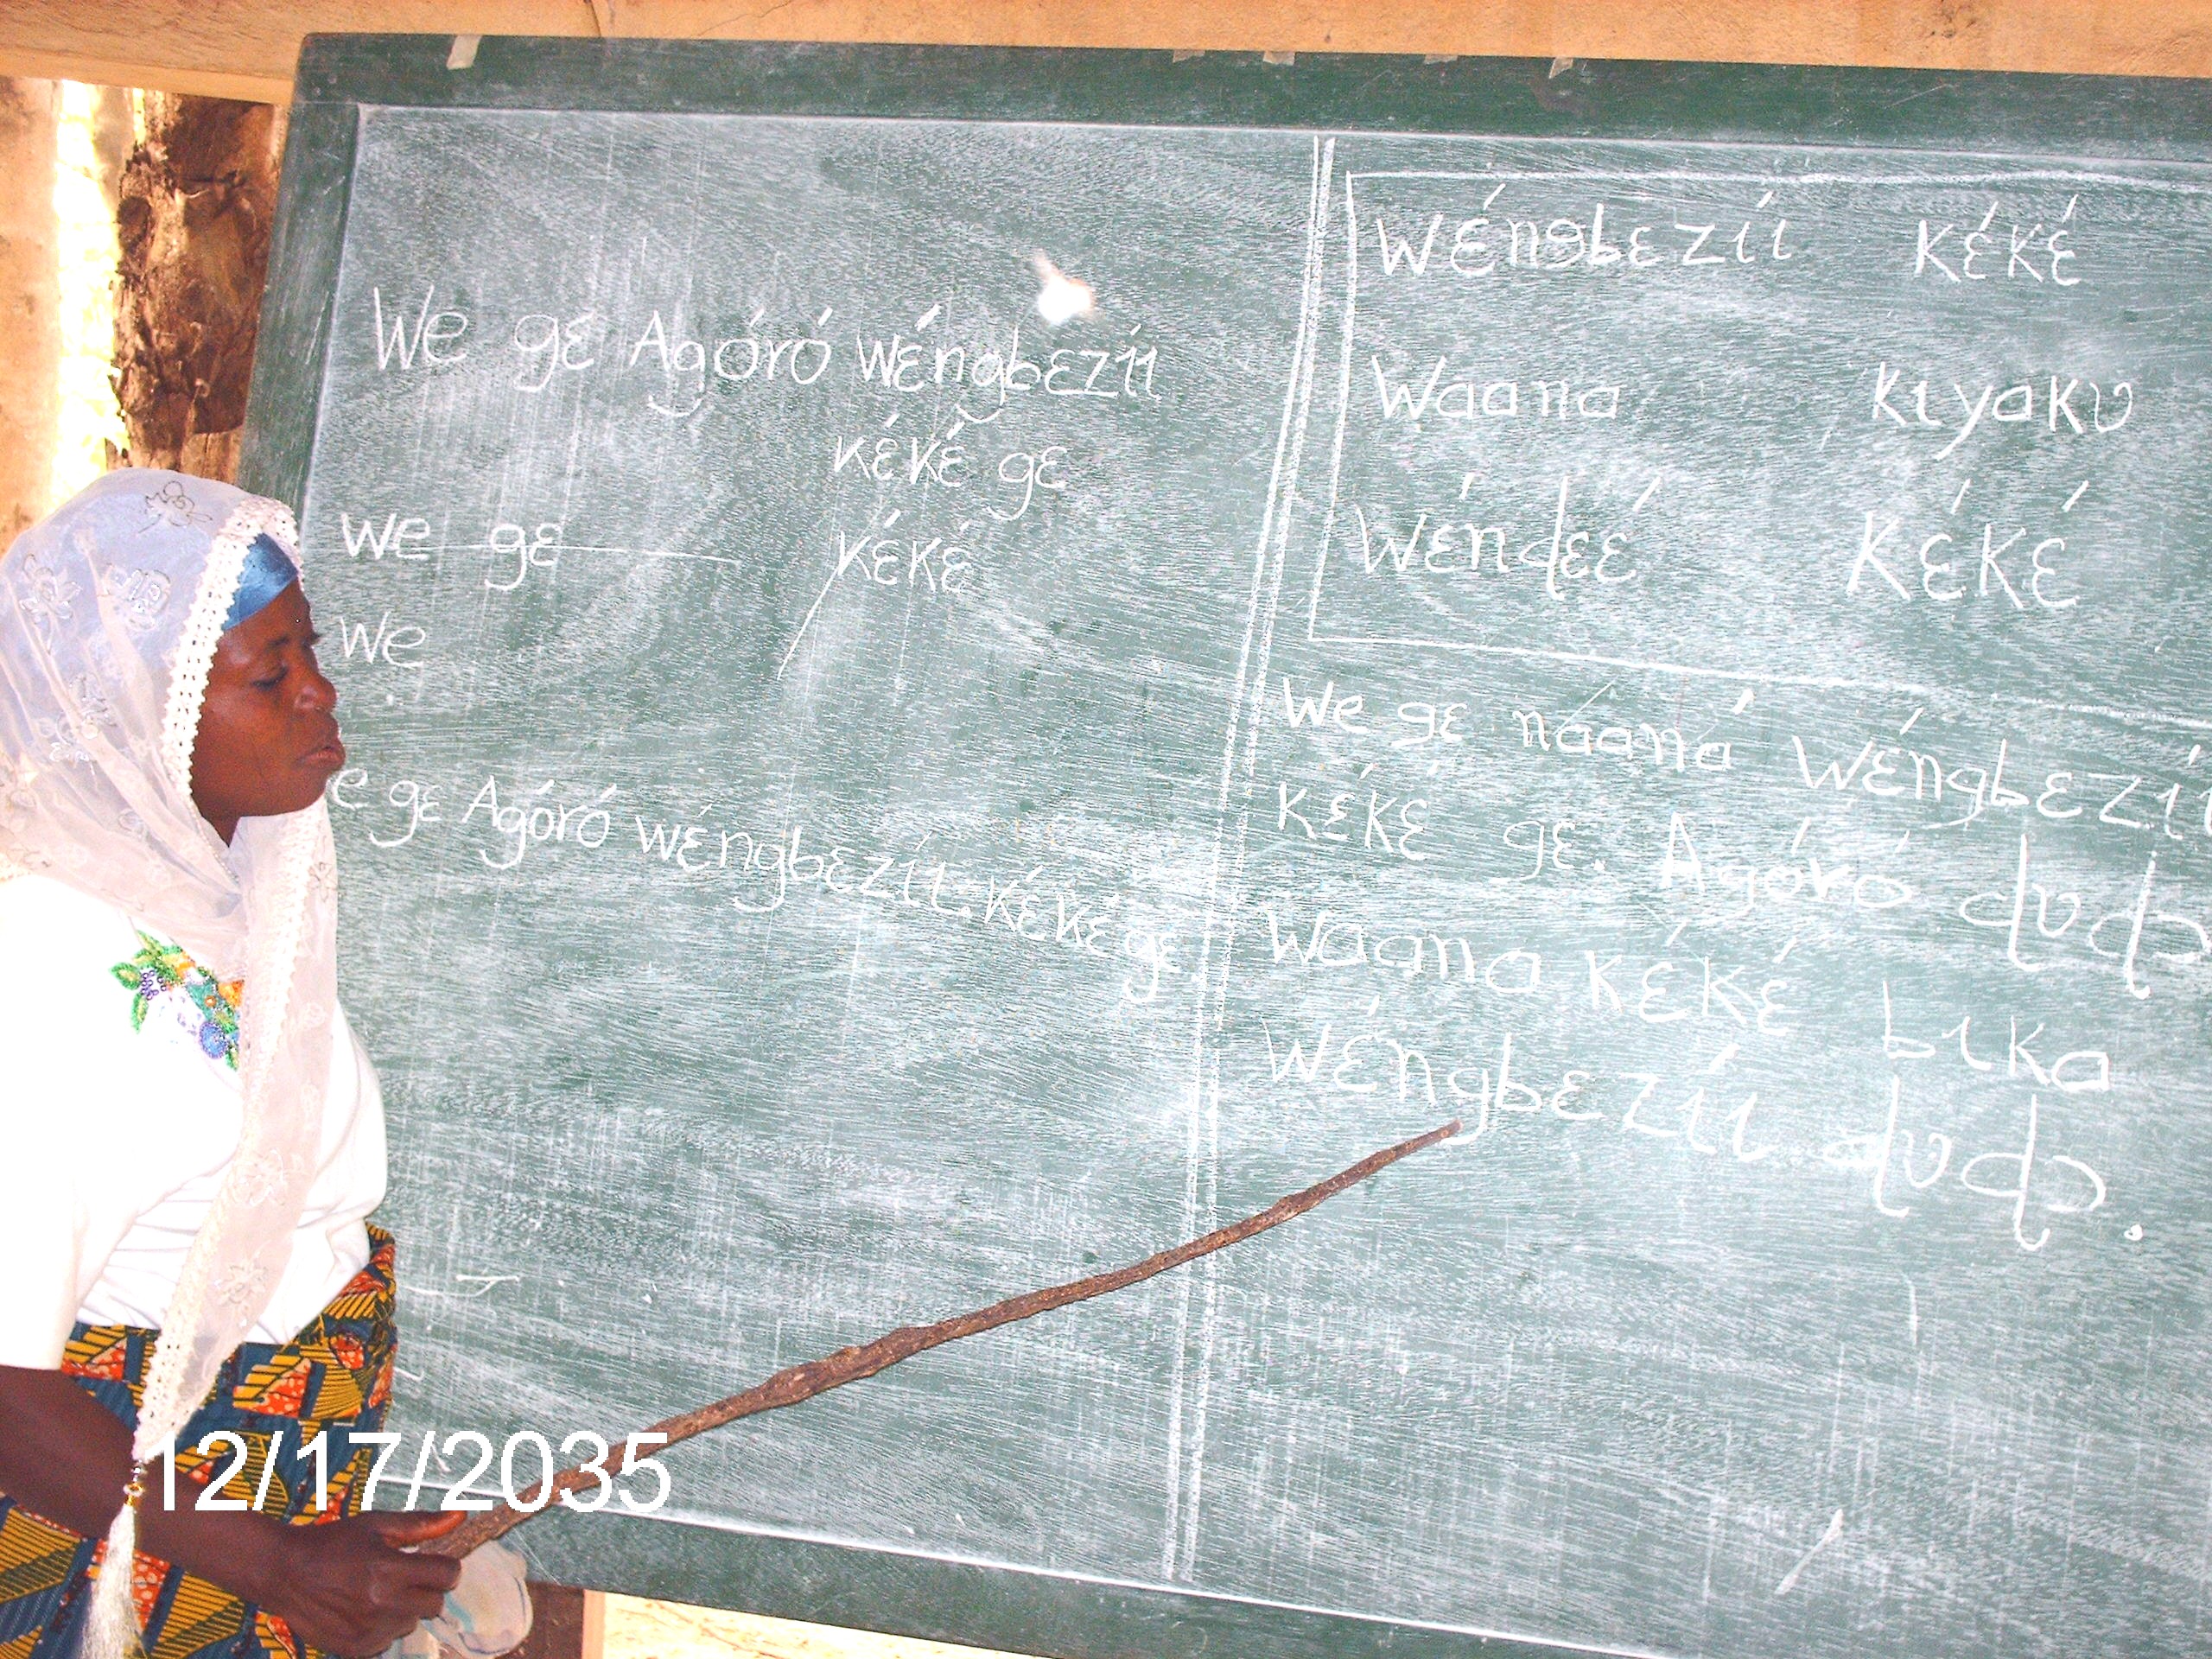 We gɛ Agóró wɛ́ngbɛzɩ́ɩ
kɛ́kɛ́ gɛ
we gɛ kɛ́kɛ́
We
e gɛ Agóró wɛ́ngbɛzɩ́ɩ. kɛ́kɛ́ gɛ
wɛ́ngbɛzɩ́ɩ kɛ́kɛ́
Waana kɩyakʋ
Wɛ́nɖɛɛ́ kɛ́kɛ́
We gɛ naaná wɛ́ngbɛzɩ́ɩ
kɛ́kɛ gɛ. Agóró ɖʋɖɔ
Waana kɛ́kɛ́ bɩka
Wɛ́ngbɛzɩ́ɩ ɖʋɖɔ.
12/17/2035